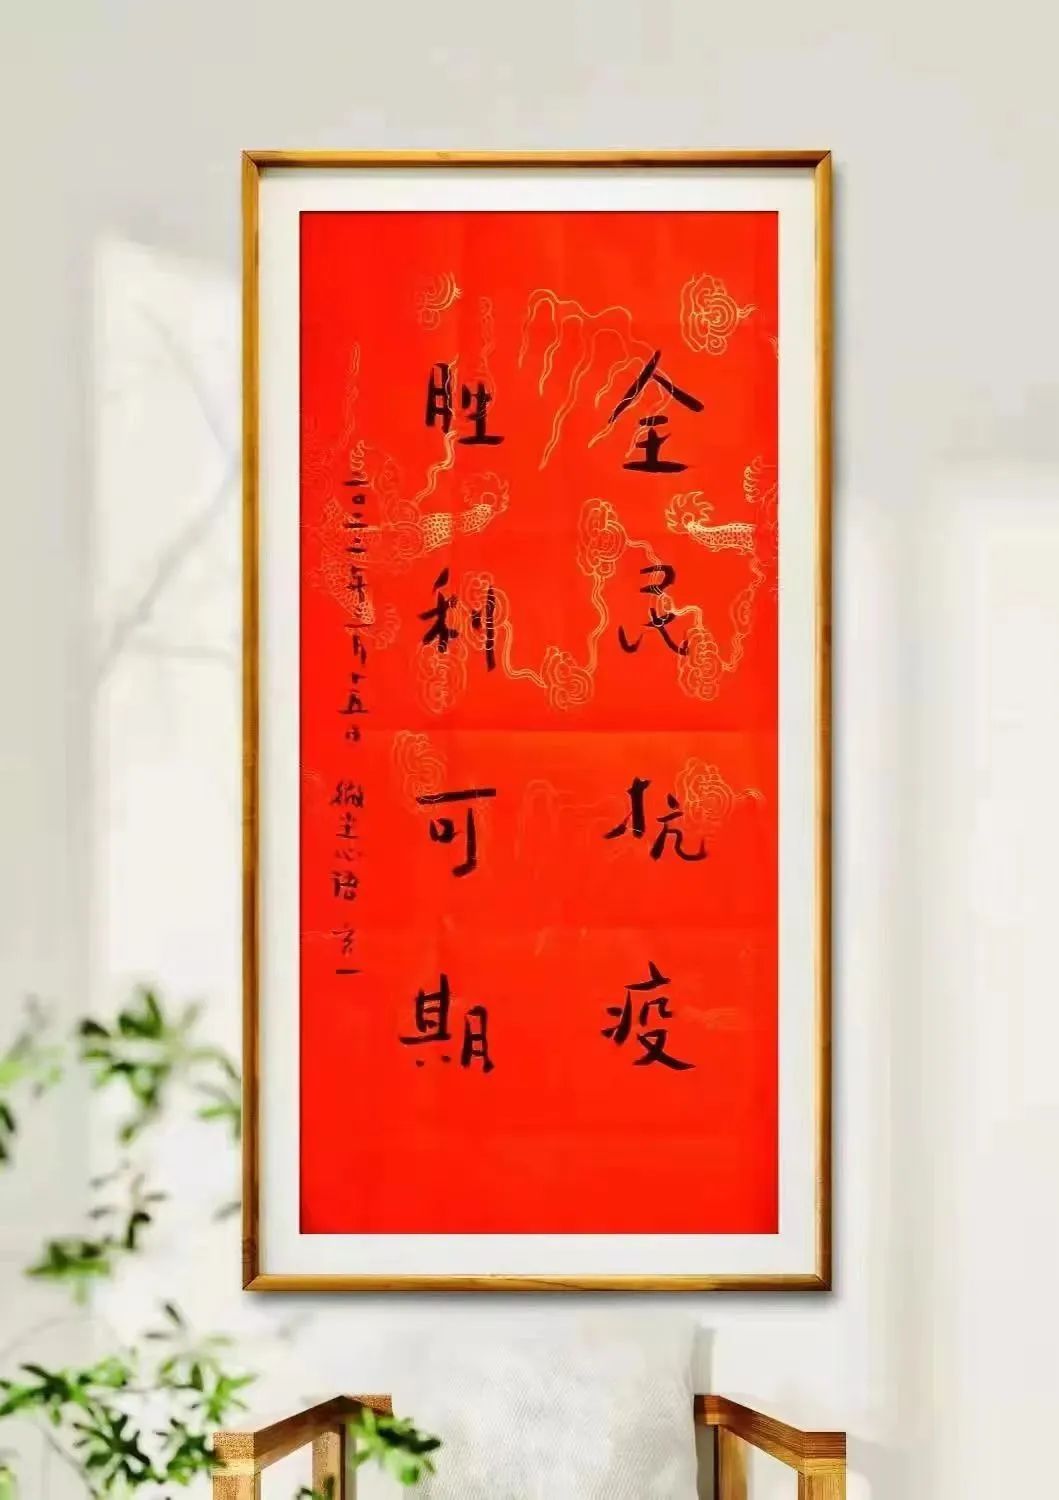 全民抗疫
胜利可期
二〇二二年三月十五日 微尘心语